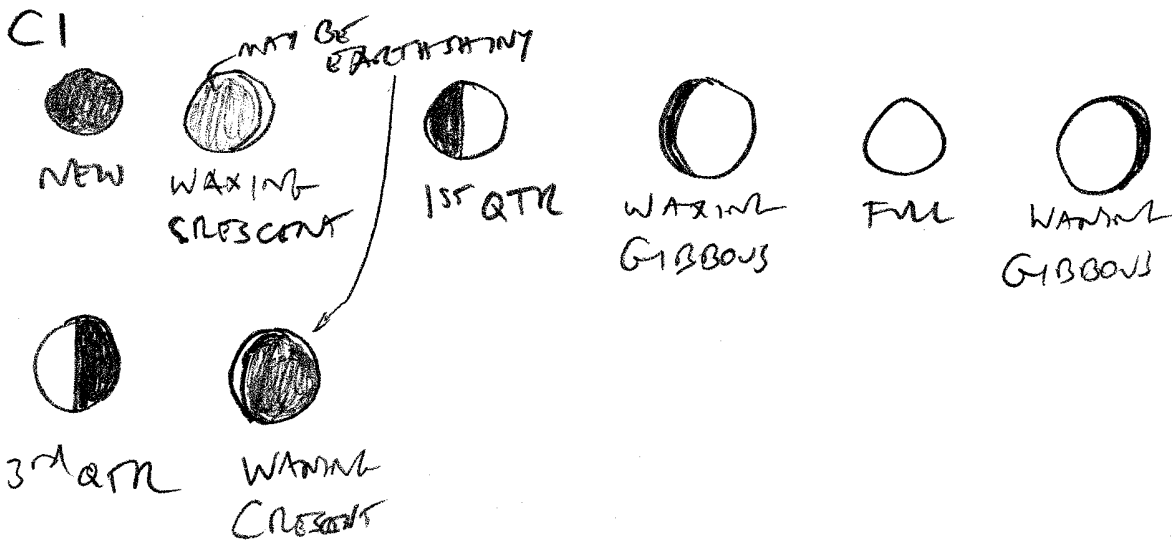 C1
MAY BE
EARTHSHINY
NEW
WAXING
CRESCENT
1ST QTR
WAXING
GIBBOUS
FULL
WANING
GIBBOUS
3rd QTR
WANING
CRESCENT